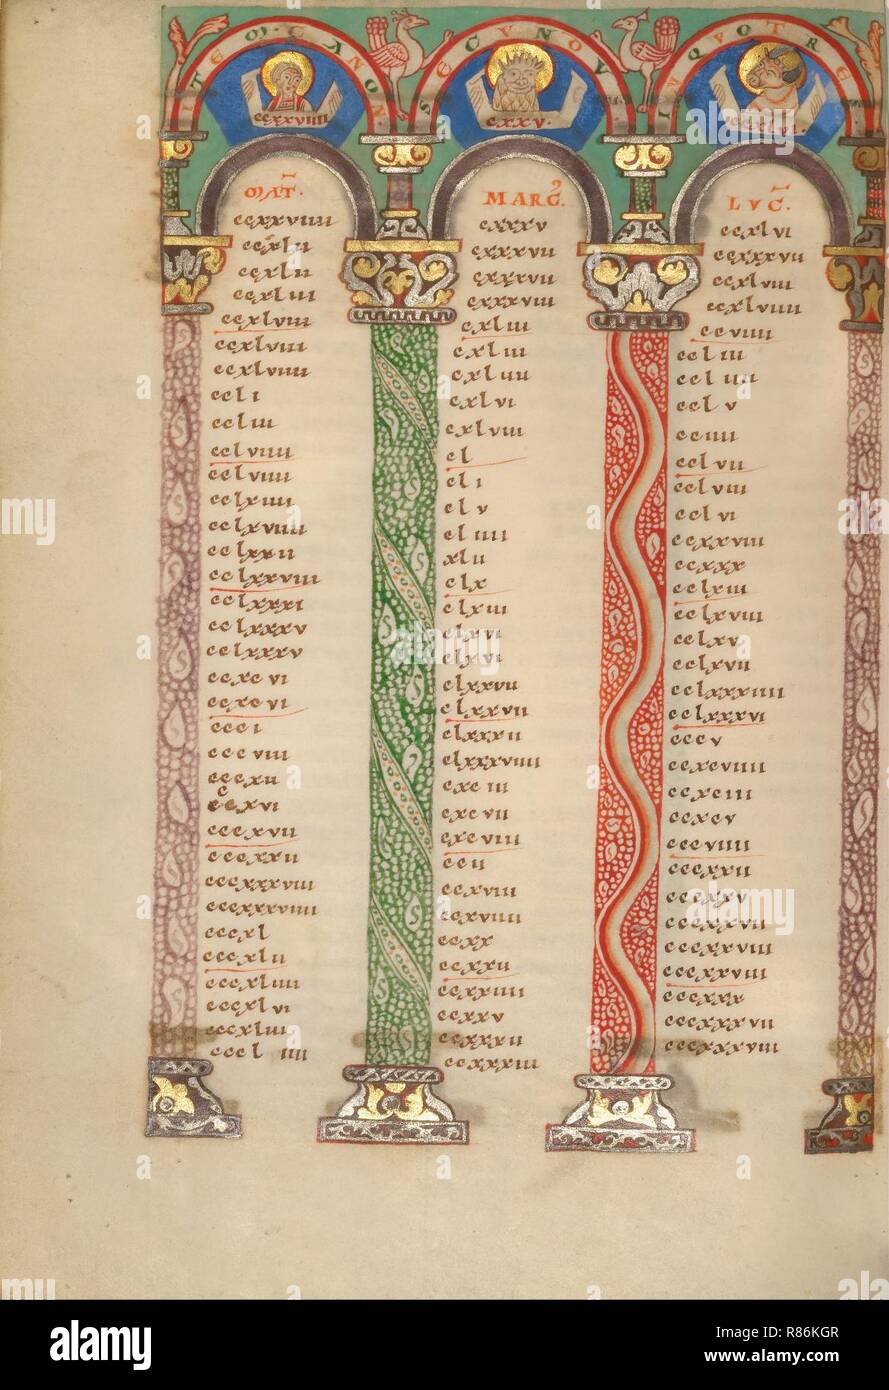 ITEM·CANON·SECVNDVS INQVOTRE
ccxxviiii
ccxxv.
ccxlvi.
MAT.
ccxxviiii
ccxlii
ccxlii
ccxliii
ccxlviii
ccxlviii
ccxlviiii
ccli
ccliii
cclviiii
cclviiii
cclxiiii
cclxviiii
cclxxii
cclxxviiii
cclxxxi
cclxxxv
cclxxxv
ccxcvi
ccxcvi
ccci
cccviii
cccxii
cccxvi
cccxvii
cccxxii
cccxxxviii
cccxxxviiii
cccxl
cccxlii
cccxliiii
cccxlvi
cccxliii
cccliiii
MARC.
cxxxv
cxxxvii
cxxxvii
cxxxviii
cxliii
cxliii
cxliiii
cxlvi
cxlviii
cl
cli
clv
cliiii
xlii
clx
clxiii
clxvi
clxvi
clxxvii
clxxvii
clxxxii
clxxxviiii
cxciii
cxcvii
cxcviii
ccii
ccxviii
ccxviiii
ccxx
ccxxii
ccxxiiii
ccxxv
ccxxxii
ccxxxiii
LVC.
ccxlvi
ccxxxvii
ccxlviii
ccxlviiii
ccviiii
ccliii
ccliiii
cclv
cciiii
cclvii
cclviii
cclvi
ccxxviii
ccxxx
cclxiii
cclxviii
cclxv
cclxvii
cclxxxiiii
cclxxxvi
cccv
ccxcviiii
ccxciii
ccxcv
cccviiii
cccxxii
cccxxv
cccxxvii
cccxxviii
cccxxviii
cccxxx
cccxxxvii
cccxxxviii
alamy
Image ID: R86KGR
www.alamy.com